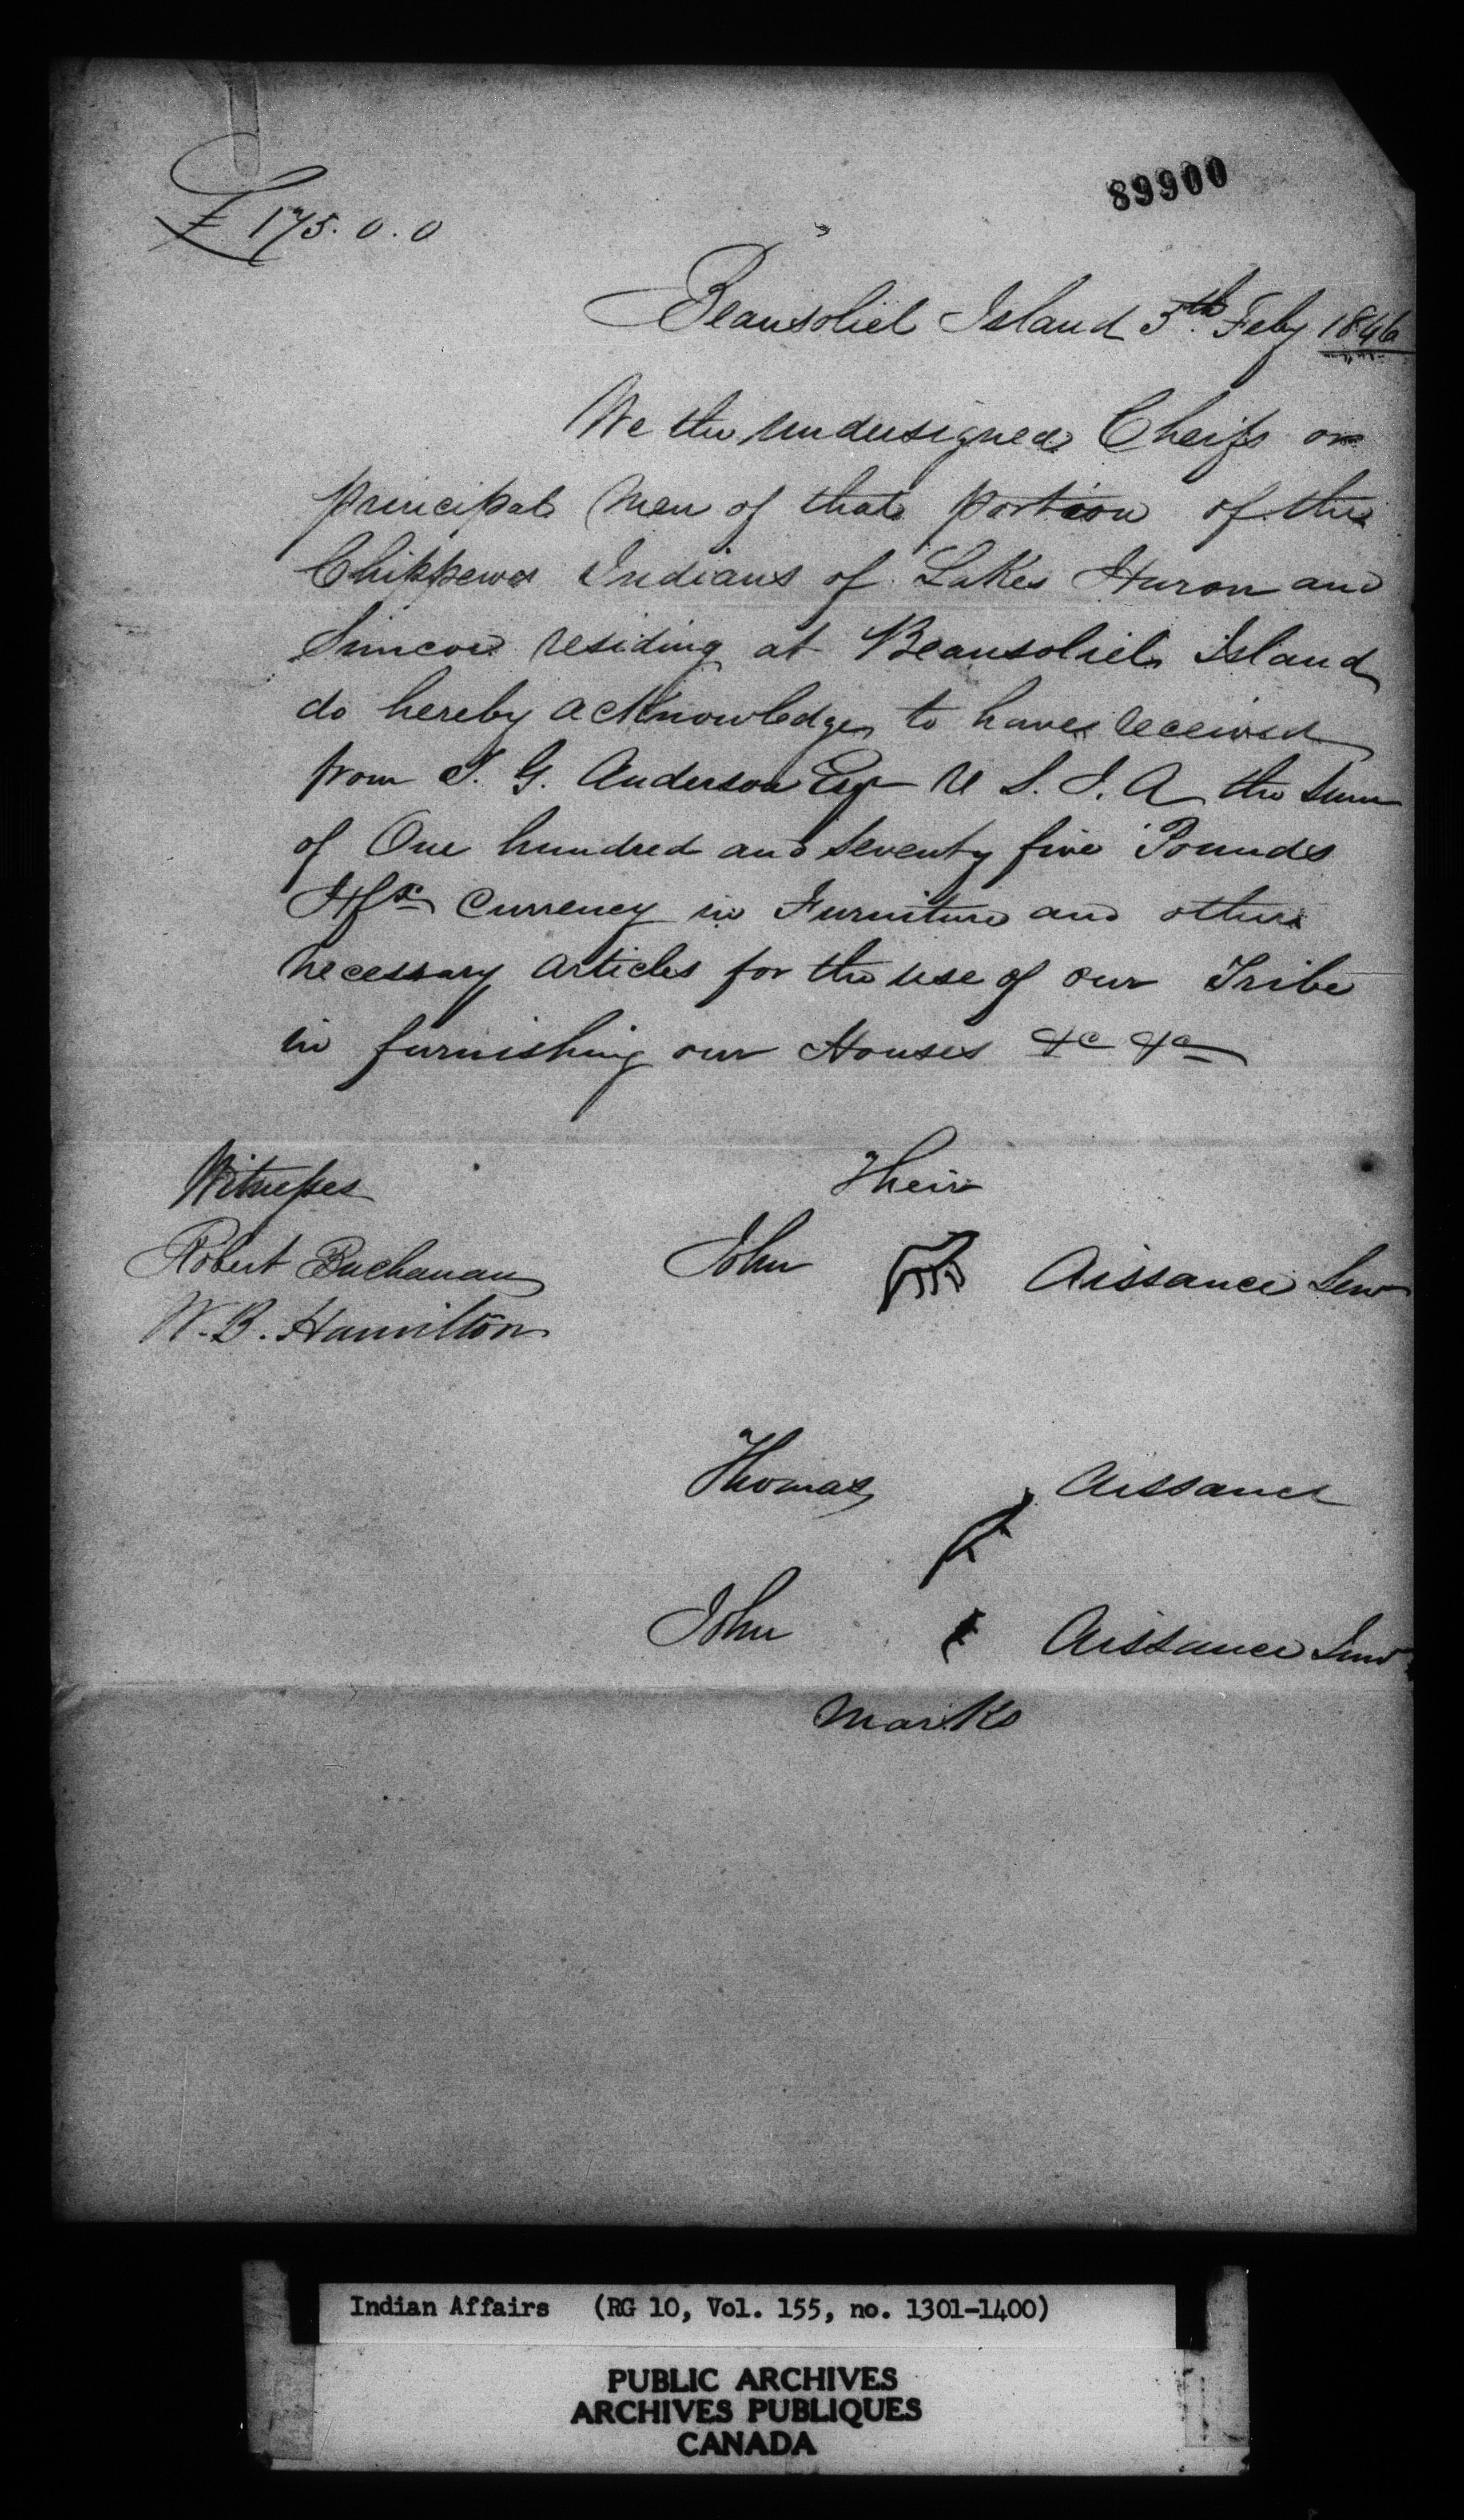 89900
£175.0.0
Beausoliel Island 5th Feby 1846
We the undersigned Cheifs or
principal Men of that portion of the
Chippewa Indians of Lakes Huron and
Simcoe residing at Beausoliel Island
do hereby acknowledge to have received
from T. G. Anderson Esqr V S. I. A the sum
of One hundred and seventy five Pounds
Hfx Currency in Furniture and other
necessary articles for the use of our Tribe
in furnishing our Houses &c &c
Witnesses
Their
Robert Buchanan
John Aissance Senr
W. B. Hamilton
Thomas Aissance
John Aissance Junr
Marks
Indian Affairs (RG 10, Vol. 155, no. 1301-1400)
PUBLIC ARCHIVES
ARCHIVES PUBLIQUES
CANADA